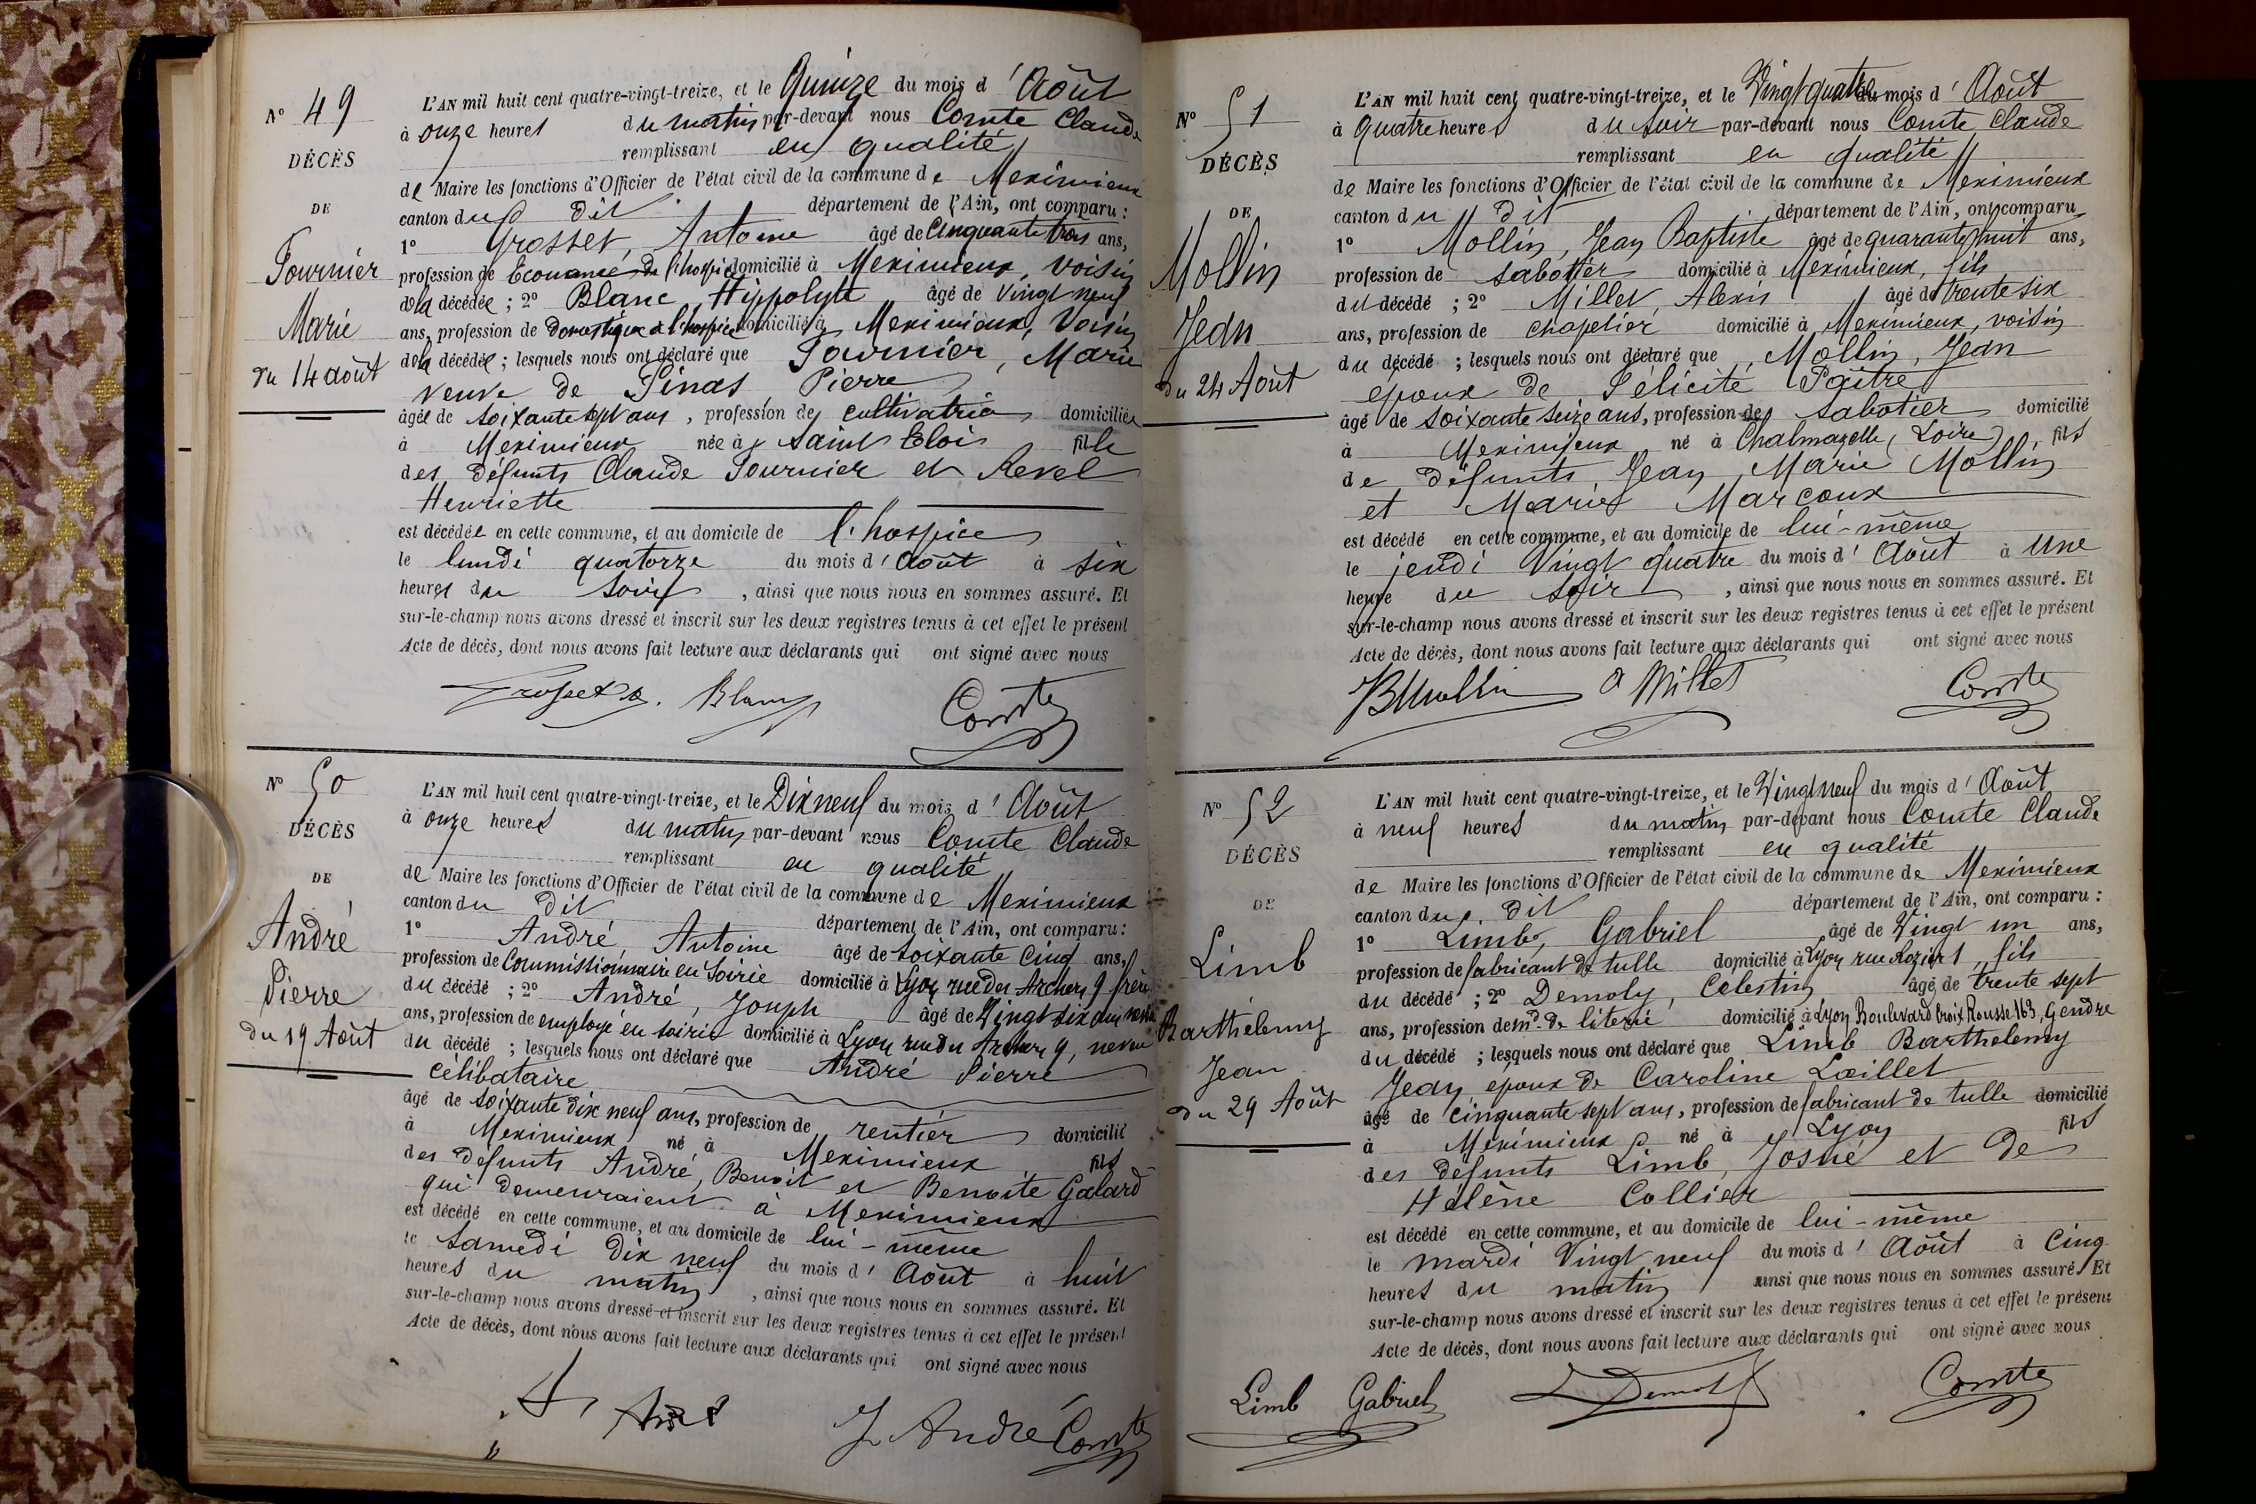 N° 49
DÉCÈS
DE
Fournier
Marie
du 14 août
L'AN mil huit cent quatre-vingt-treize, et le Quinze du mois d' Août
à onze heures du matin par-devant nous Comte Claude
remplissant en qualité
de Maire les fonctions d'Officier de l'état civil de la commune de Meximieux
canton du dit département de l'Ain, ont comparu :
1° Grosset, Antoine âgé de Cinquante trois ans,
profession de Econome de l'hospice domicilié à Meximieux, voisin
de la décédée ; 2° Blanc, Hippolyte âgé de vingt neuf
ans, profession de domestique à l'hospice domicilié à Meximieux, Voisin
de la décédée ; lesquels nous ont déclaré que Fournier, Marie
veuve de Pinas Pierre
âgée de soixante sept ans, profession de cultivatrice domiciliée
à Meximieux née à Saint Eloi fille
des défunts Claude Fournier et Revel
Henriette
est décédée en cette commune, et au domicile de l'hospice
le lundi quatorze du mois d' Août à six
heures du soir, ainsi que nous nous en sommes assuré. Et
sur-le-champ nous avons dressé et inscrit sur les deux registres tenus à cet effet le présent
Acte de décès, dont nous avons fait lecture aux déclarants qui ont signé avec nous
Grosset a. Blanc Comte
N° 50
DÉCÈS
DE
André
Pierre
du 19 Août
L'AN mil huit cent quatre-vingt-treize, et le Dix neuf du mois d' Août
à onze heures du matin par-devant nous Comte Claude
remplissant en qualité
de Maire les fonctions d'Officier de l'état civil de la commune de Meximieux
canton du dit département de l'Ain, ont comparu :
1° André, Antoine âgé de soixante cinq ans,
profession de Commissionnaire en Soirie domicilié à Lyon rue des Archers 9 frère
du décédé ; 2° André, Joseph âgé de Vingt six ans
ans, profession de employé en soirie domicilié à Lyon rue des Archers 9, neveu
du décédé ; lesquels nous ont déclaré que André Pierre
célibataire
âgé de soixante dix neuf ans, profession de rentier domicilié
à Meximieux né à Meximieux fils
des défunts André, Benoit et Benoite Galard
qui demeuraient à Meximieux
est décédé en cette commune, et au domicile de lui-même
le samedi dix neuf du mois d' Août à huit
heures du matin, ainsi que nous nous en sommes assuré. Et
sur-le-champ nous avons dressé et inscrit sur les deux registres tenus à cet effet le présent
Acte de décès, dont nous avons fait lecture aux déclarants qui ont signé avec nous
J. André Comte
N° 51
DÉCÈS
DE
Mollin
Jean
du 24 Août
L'AN mil huit cent quatre-vingt-treize, et le Vingt quatre du mois d' Août
à quatre heures du soir par-devant nous Comte Claude
remplissant en qualité
de Maire les fonctions d'Officier de l'état civil de la commune de Meximieux
canton du dit département de l'Ain, ont comparu
1° Mollin, Jean Baptiste âgé de quarante huit ans,
profession de sabotier domicilié à Meximieux, fils
du décédé ; 2° Millet, Alexis âgé de trente six
ans, profession de chapelier domicilié à Meximieux, voisin
du décédé ; lesquels nous ont déclaré que Mollin, Jean
époux de Félicité Paître
âgé de soixante seize ans, profession de sabotier domicilié
à Meximieux né à Chalmazelle (Loire), fils
de défunts Jean Marie Mollin
et Marie Marcoux
est décédé en cette commune, et au domicile de lui-même
le jeudi Vingt quatre du mois d' Août à une
heure du soir, ainsi que nous nous en sommes assuré. Et
sur-le-champ nous avons dressé et inscrit sur les deux registres tenus à cet effet le présent
Acte de décès, dont nous avons fait lecture aux déclarants qui ont signé avec nous
JB Mollin A Millet Comte
N° 52
DÉCÈS
DE
Limb
Barthélemy
Jean
du 29 Août
L'AN mil huit cent quatre-vingt-treize, et le Vingt neuf du mois d' Août
à neuf heures du matin par-devant nous Comte Claude
remplissant en qualité
de Maire les fonctions d'Officier de l'état civil de la commune de Meximieux
canton du dit département de l'Ain, ont comparu :
1° Limb, Gabriel âgé de Vingt un ans,
profession de fabricant de tulle domicilié à Lyon rue Rozier 1, fils
du décédé ; 2° Demoly, Celestin âgé de trente sept
ans, profession de md. de literie domicilié à Lyon Boulevard Croix Rousse 163, Gendre
du décédé ; lesquels nous ont déclaré que Limb Barthelemy
Jean époux de Caroline Lœillet
âgé de cinquante sept ans, profession de fabricant de tulle domicilié
à Meximieux né à Lyon fils
des défunts Limb, Josué et de
Hélène Collier
est décédé en cette commune, et au domicile de lui-même
le mardi Vingt neuf du mois d' Août à Cinq
heures du matin ainsi que nous nous en sommes assuré. Et
sur-le-champ nous avons dressé et inscrit sur les deux registres tenus à cet effet le présent
Acte de décès, dont nous avons fait lecture aux déclarants qui ont signé avec nous
Limb Gabriel Demoly Comte